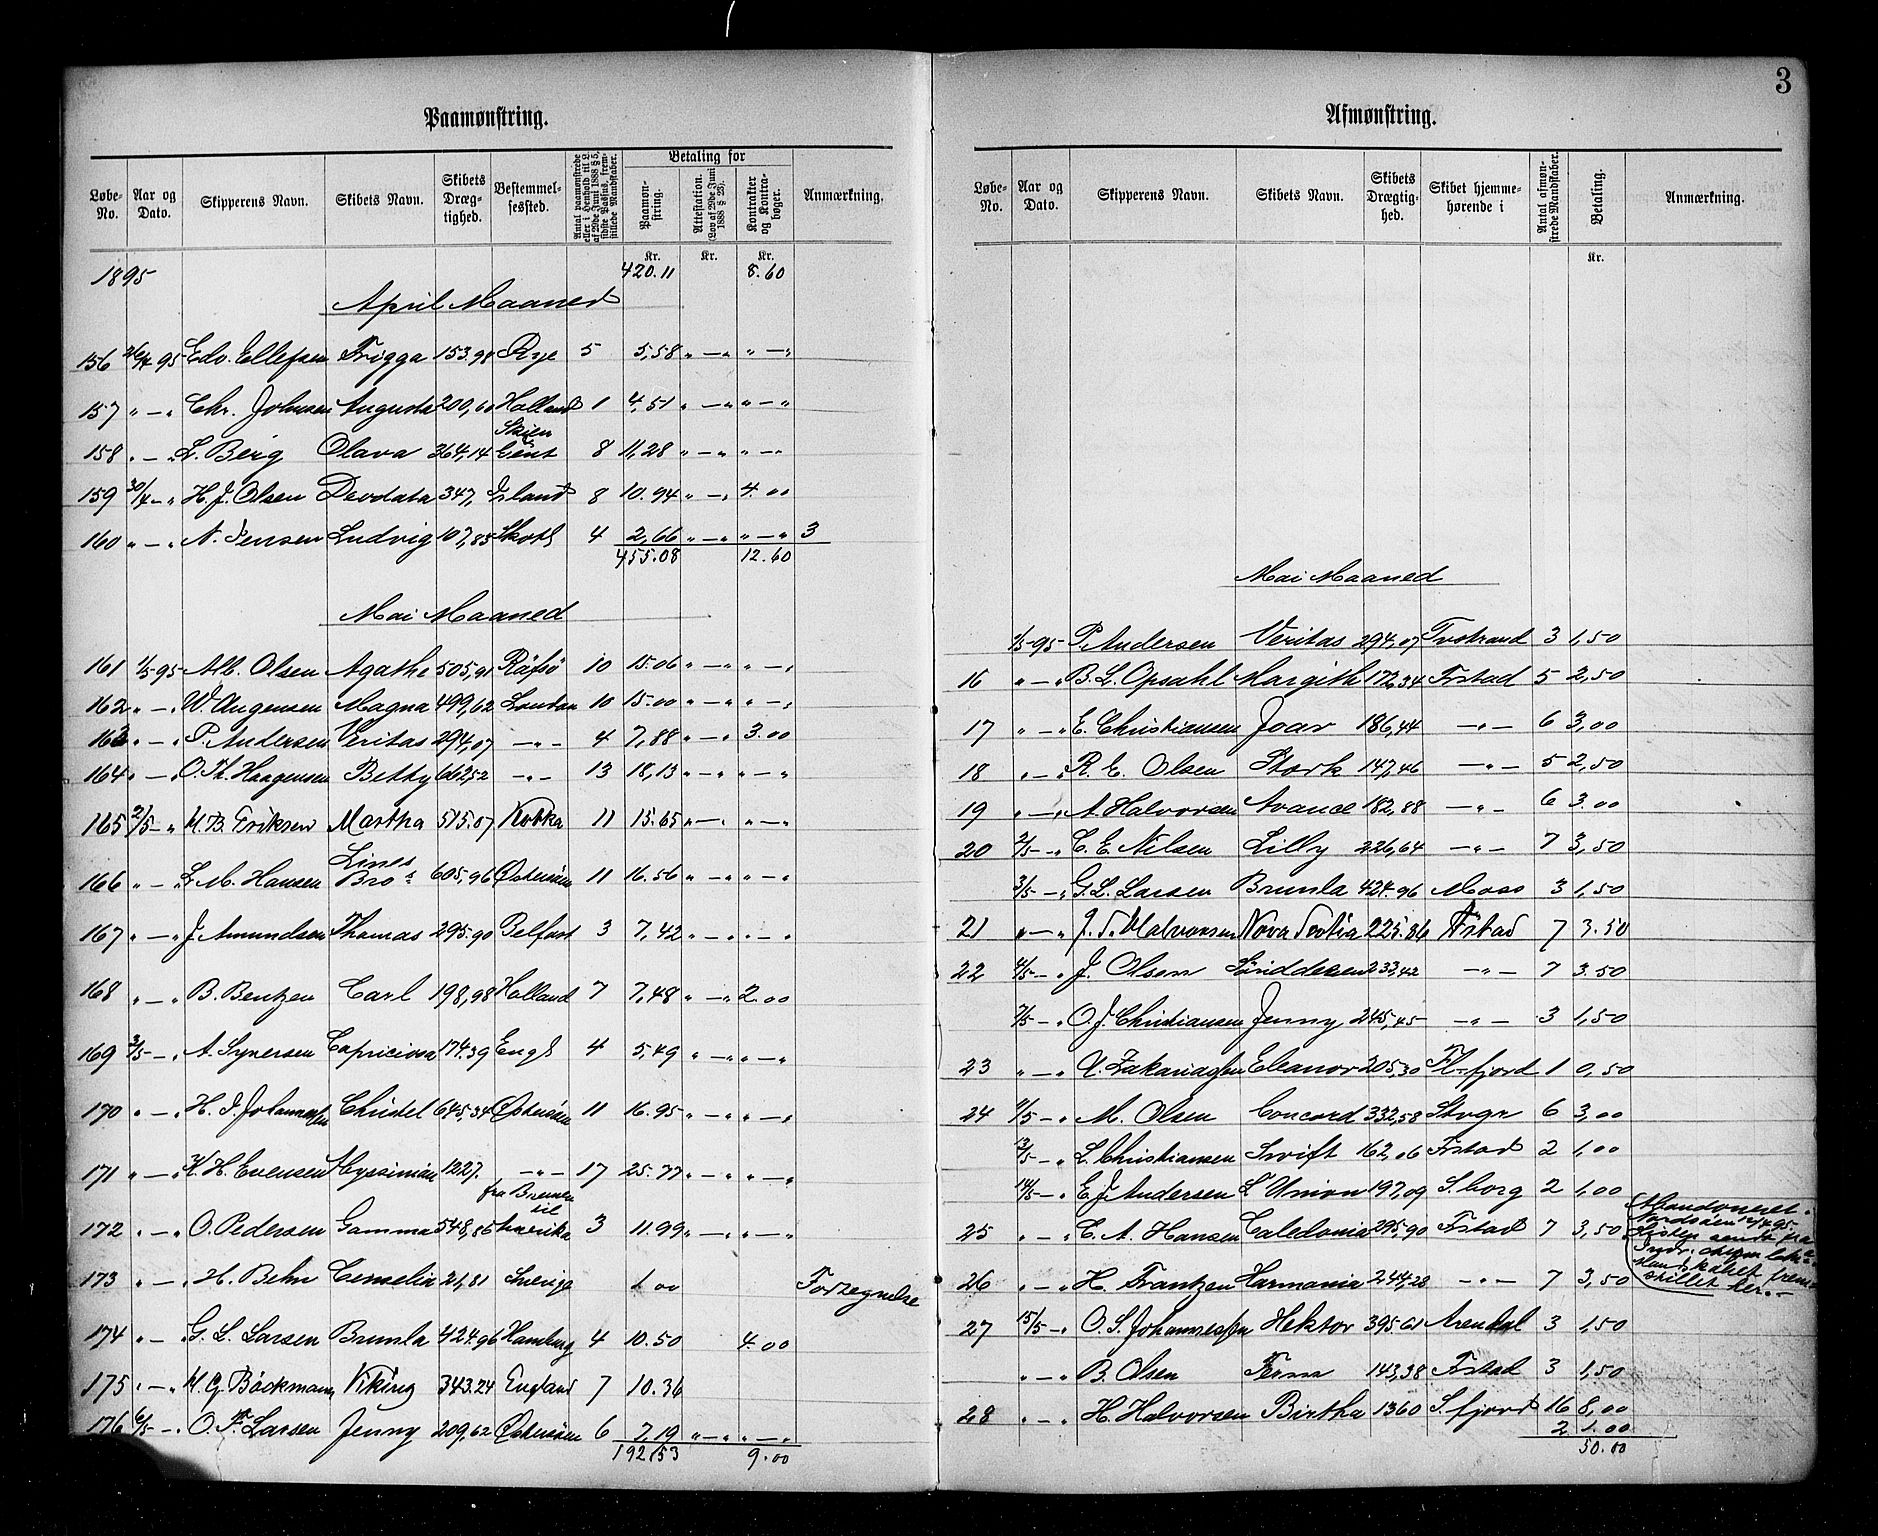 3
Paamønstring.
Løbe-No. Aar og Dato. Skipperens Navn. Skibets Navn. Skibets Dræg-tighed. Bestemmel-sessted. Betaling for Paamøn-string. Attestation. (Lov af 29de Juni 1888 § 25). Kontrakter og Kontra-bøger. Anmærkning.
Kr. Kr. Kr.
1895 420.11 8.60
April Maaned
156 26/4 95 Edv. Ellefsen Frigga 153.98 Rye 5 5,58 " — " " — "
157 " — " Chr. Johnsen Augusta 200,60 Holland 1 4,51 " — " " — "
Skien
158 " — " L. Berg Olava 364,14 Gent 8 11,28 " — " " — "
159 30/4 — " H. J. Olsen Deodata 347, Island 8 10.94 " — " 4.00
160 " — " N. Jensen Ludvig 107,85 Skotl 4 2,66 " — " " — " 3
455.08 12.60
Mai Maaned
161 1/5-95 Alb. Olsen Agathe 505,91 Räfsö 10 15.06 " — " " — "
162 " — " W. Angensen Magna 499,62 London 10 15.00 " — " " — "
163 " — " P. Andersen Veritas 294,07 — " — 4 7,88 " — " 3.00
164 " — " O. Th. Haagensen Betty 662,52 — " — 13 18,13 " — " " — "
165 2/5 — " M. B. Eriksen Martha 515.07 Kotka 11 15.65 " — " " — "
Lines
166 " — " L. M. Hansen Bros 605,96 Østersøen 11 16.56 " — " " — "
167 " — " J. Amundsen Thomas 295.90 Belfast 3 7,42 " — " " — "
168 " — " B. Bentzen Carl 198,98 Holland 7 7,48 " — " 2.00
169 3/5 — " A. Syversen Capriciosa 174.39 Engl 4 5,49 " — " " — "
170 " — " H. J. Johannessen Christel 645,34 Østersøen 11 16.95 " — " " — "
171 " — " K. H. Evensen Abyssinian 1227. — " — 17 25.77 " — " " — "
fra Bremen til
172 " — " O. Pedersen Gamma 548,85 Amerika 3 11.99 " — " " — "
173 " — " H. Behn Cornelia 21,81 Sverige 1.00 Forsegnelse
174 " — " G. L. Larsen Brunla 424.96 Hamburg 4 10.50 4.00
175 " — " M. G. Böckmann Viking 343.24 England 7 10.36
176 6/5 — " O. F. Larsen Jenny 209,62 Østersøen 6 7,19 " — " " — "
192,53 9.00
Afmønstring.
Løbe-No. Aar og Dato. Skipperens Navn. Skibets Navn. Skibets Drægtig-hed. Skibet hjemme-hørende i Antal afmøn-strede Mandskaber. Betaling. Anmærkning.
Kr.
Mai Maaned
1/5-95 P. Andersen Veritas 294,07 Tvstrand 3 1,50
16 " — " B. L. Opsahl Margith 172,34 Frstad 5 2,50
17 " — " E. Christiansen Joar 186,44 — " — 6 3,00
18 " — " R. E. Olsen Stork 147,46 — " — 5 2,50
19 " — " A. Halvorsen Avance 182,88 — " — 6 3.00
20 2/5 — " C. E. Nilsen Lilly 226,64 — " — 7 3,50
3/5 — " G. L. Larsen Brunla 424.96 Moss 3 1,50
21 " — " J. T. Halvorsen Nova Scotia 225.86 Frstad 7 3.50
22 4/5 — " J. Olsen 233,42 — " — 7 3.50
7/5 — " O. J. Christiansen Jenny 245,45 — " — 3 1,50
23 " — " Zakariassen Eleanor 205,30 Fl-fjord 1 0,50
24 11/5 — " M. Olsen Concord 332,58 6 3,00
13/5 — " L. Christiansen Swift 162,06 Frstad 2 1,00
14/5 — " E. J. Andersen L'Union 197,09 S.borg 2 1,00
25 " — " C. A. Hansen Caledonia 295,90 Frstad 7 3,50 Abandoneret Nordsøen 12/4 95. sendt fra Mandskabet frem-stillet her. —
26 " — " H. Frantzen Harmonia 244,28 — " — 7 3,50
27 15/5 — " O. S. Johannessen Hektor 395.61 Arendal 3 1,50
" — " B. Olsen Ferm 143,38 Frstad 3 1,50
28 " — " H. Halvorsen Birtha 1360 S.fjord 16 8,00
2 1.00
50.00